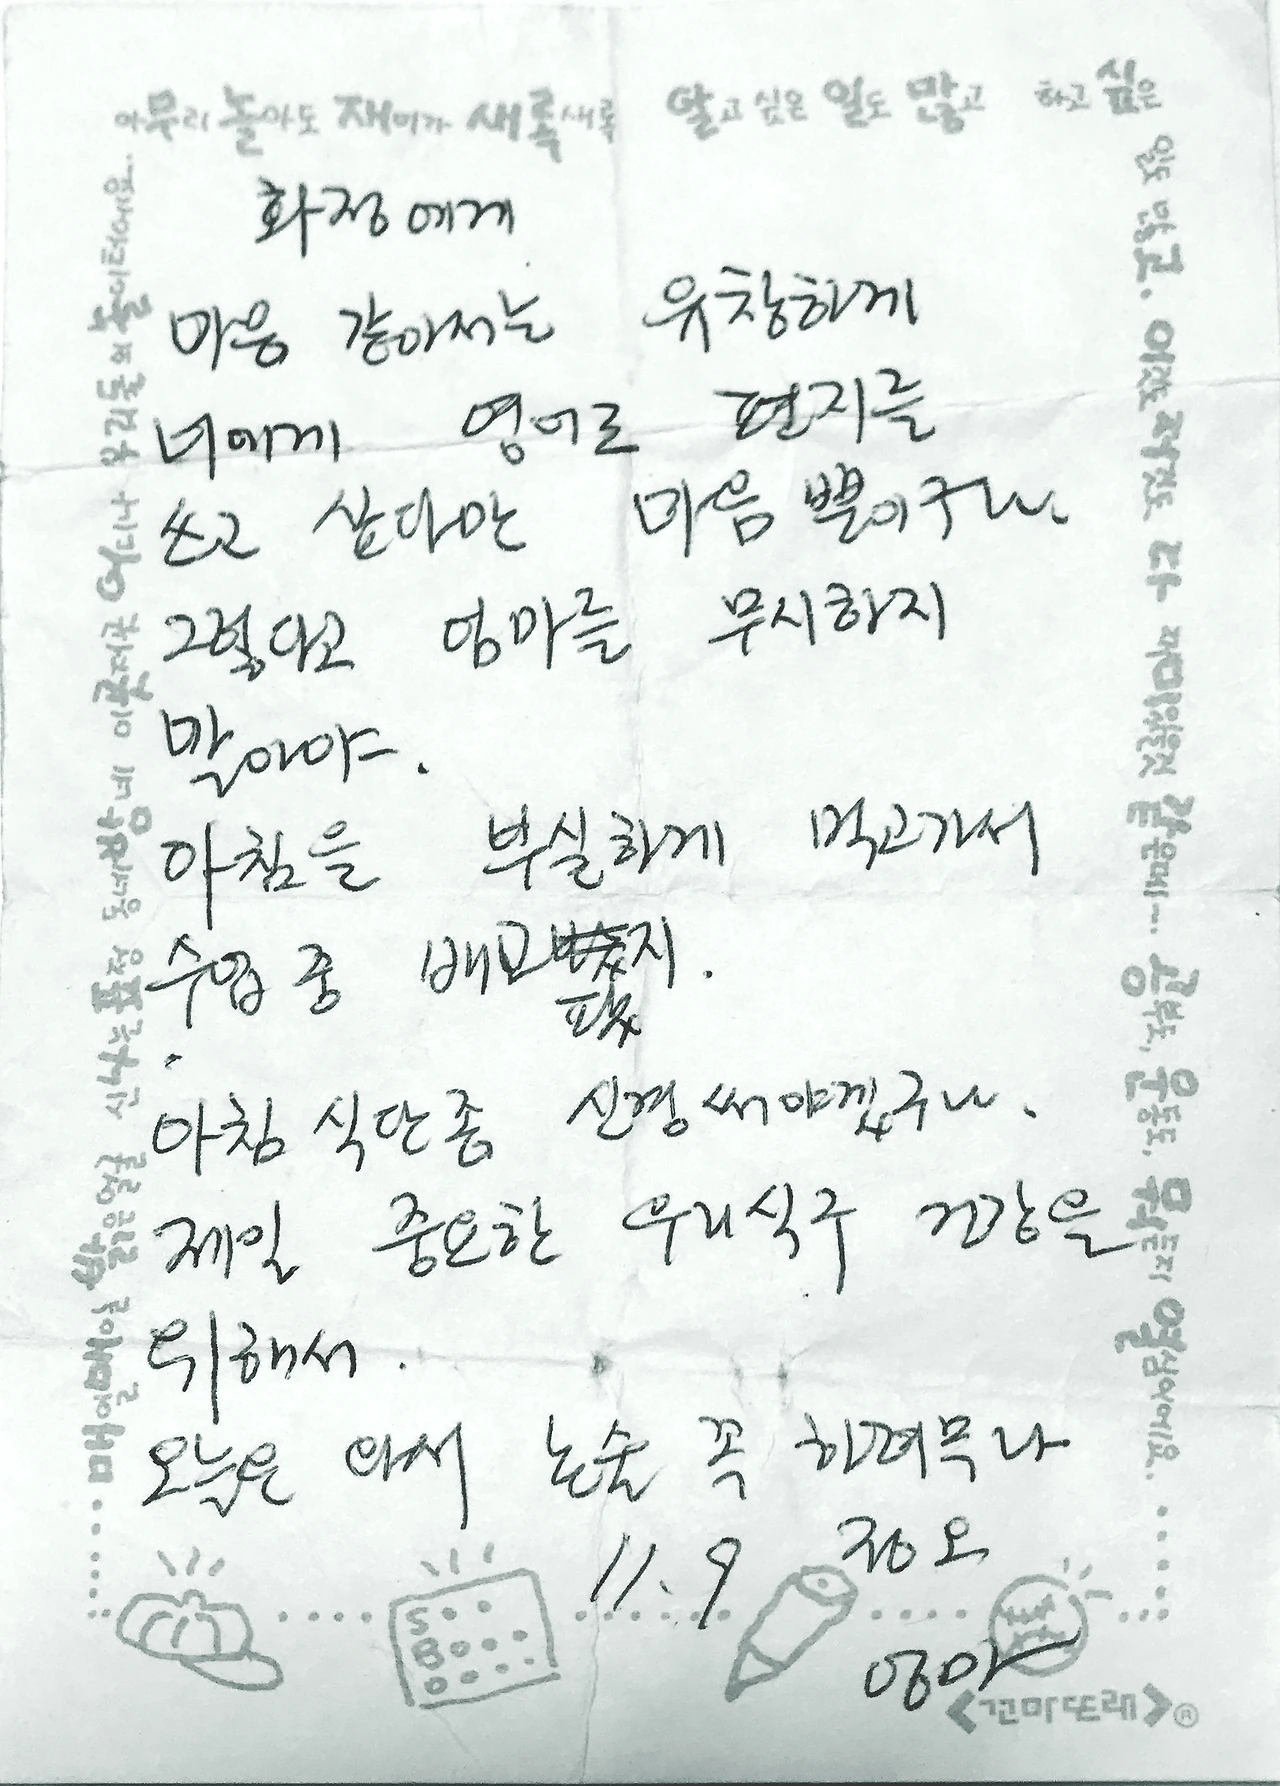 아무리 놀아도 재미가 새록새록 알고 싶은 일도 많고 하고 싶은
일도 많고.
화정에게
마음 같아서는 유창하게
너에게 영어로 편지를
쓰고 싶다만 마음뿐이구나.
그렇다고 엄마를 무시하지
말아야.
아침을 부실하게 먹고가서
수업중 배고팠지.
아침식단좀 신경써야겠구나.
제일 중요한 우리식구 건강을
위해서.
오늘은 와서 논술 꼭 하려무나
11.9 정오
엄마
매일매일 밝은 얼굴 신나는 표정 동네방네 이곳저곳 어디나 우리들의 놀이터에요.
공부도, 운동도, 뭐든지 열심이에요.
S
B
O
<꼬마또래>®